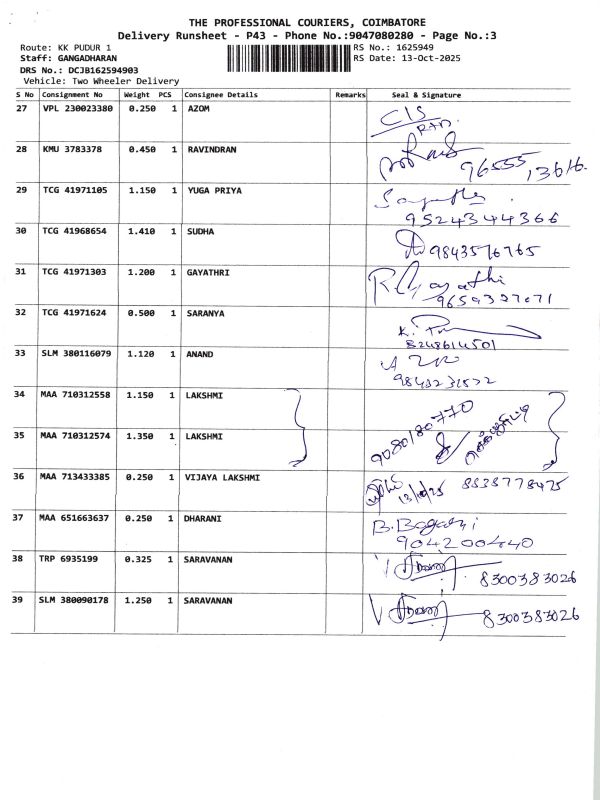 THE PROFESSIONAL COURIERS, COIMBATORE
Delivery Runsheet - P43 - Phone No.:9047080280 - Page No.:3
Route: KK PUDUR 1 RS No.: 1625949
Staff: GANGADHARAN RS Date: 13-Oct-2025
DRS No.: DCJB162594903
Vehicle: Two Wheeler Delivery
S No Consignment No Weight PCS Consignee Details Remarks Seal & Signature
27 VPL 230023380 0.250 1 AZOM CIS
28 KMU 3783378 0.450 1 RAVINDRAN 96555 13616
29 TCG 41971105 1.150 1 YUGA PRIYA
9524344366
30 TCG 41968654 1.410 1 SUDHA 9843576765
31 TCG 41971303 1.200 1 GAYATHRI R Gayathri
9659327071
32 TCG 41971624 0.500 1 SARANYA
8248614501
33 SLM 380116079 1.120 1 ANAND
34 MAA 710312558 1.150 1 LAKSHMI 9080180770
35 MAA 710312574 1.350 1 LAKSHMI
36 MAA 713433385 0.250 1 VIJAYA LAKSHMI 13/10/25 8838778425
37 MAA 651663637 0.250 1 DHARANI
9042200440
38 TRP 6935199 0.325 1 SARAVANAN 8300383026
39 SLM 380090178 1.250 1 SARAVANAN 8300383026